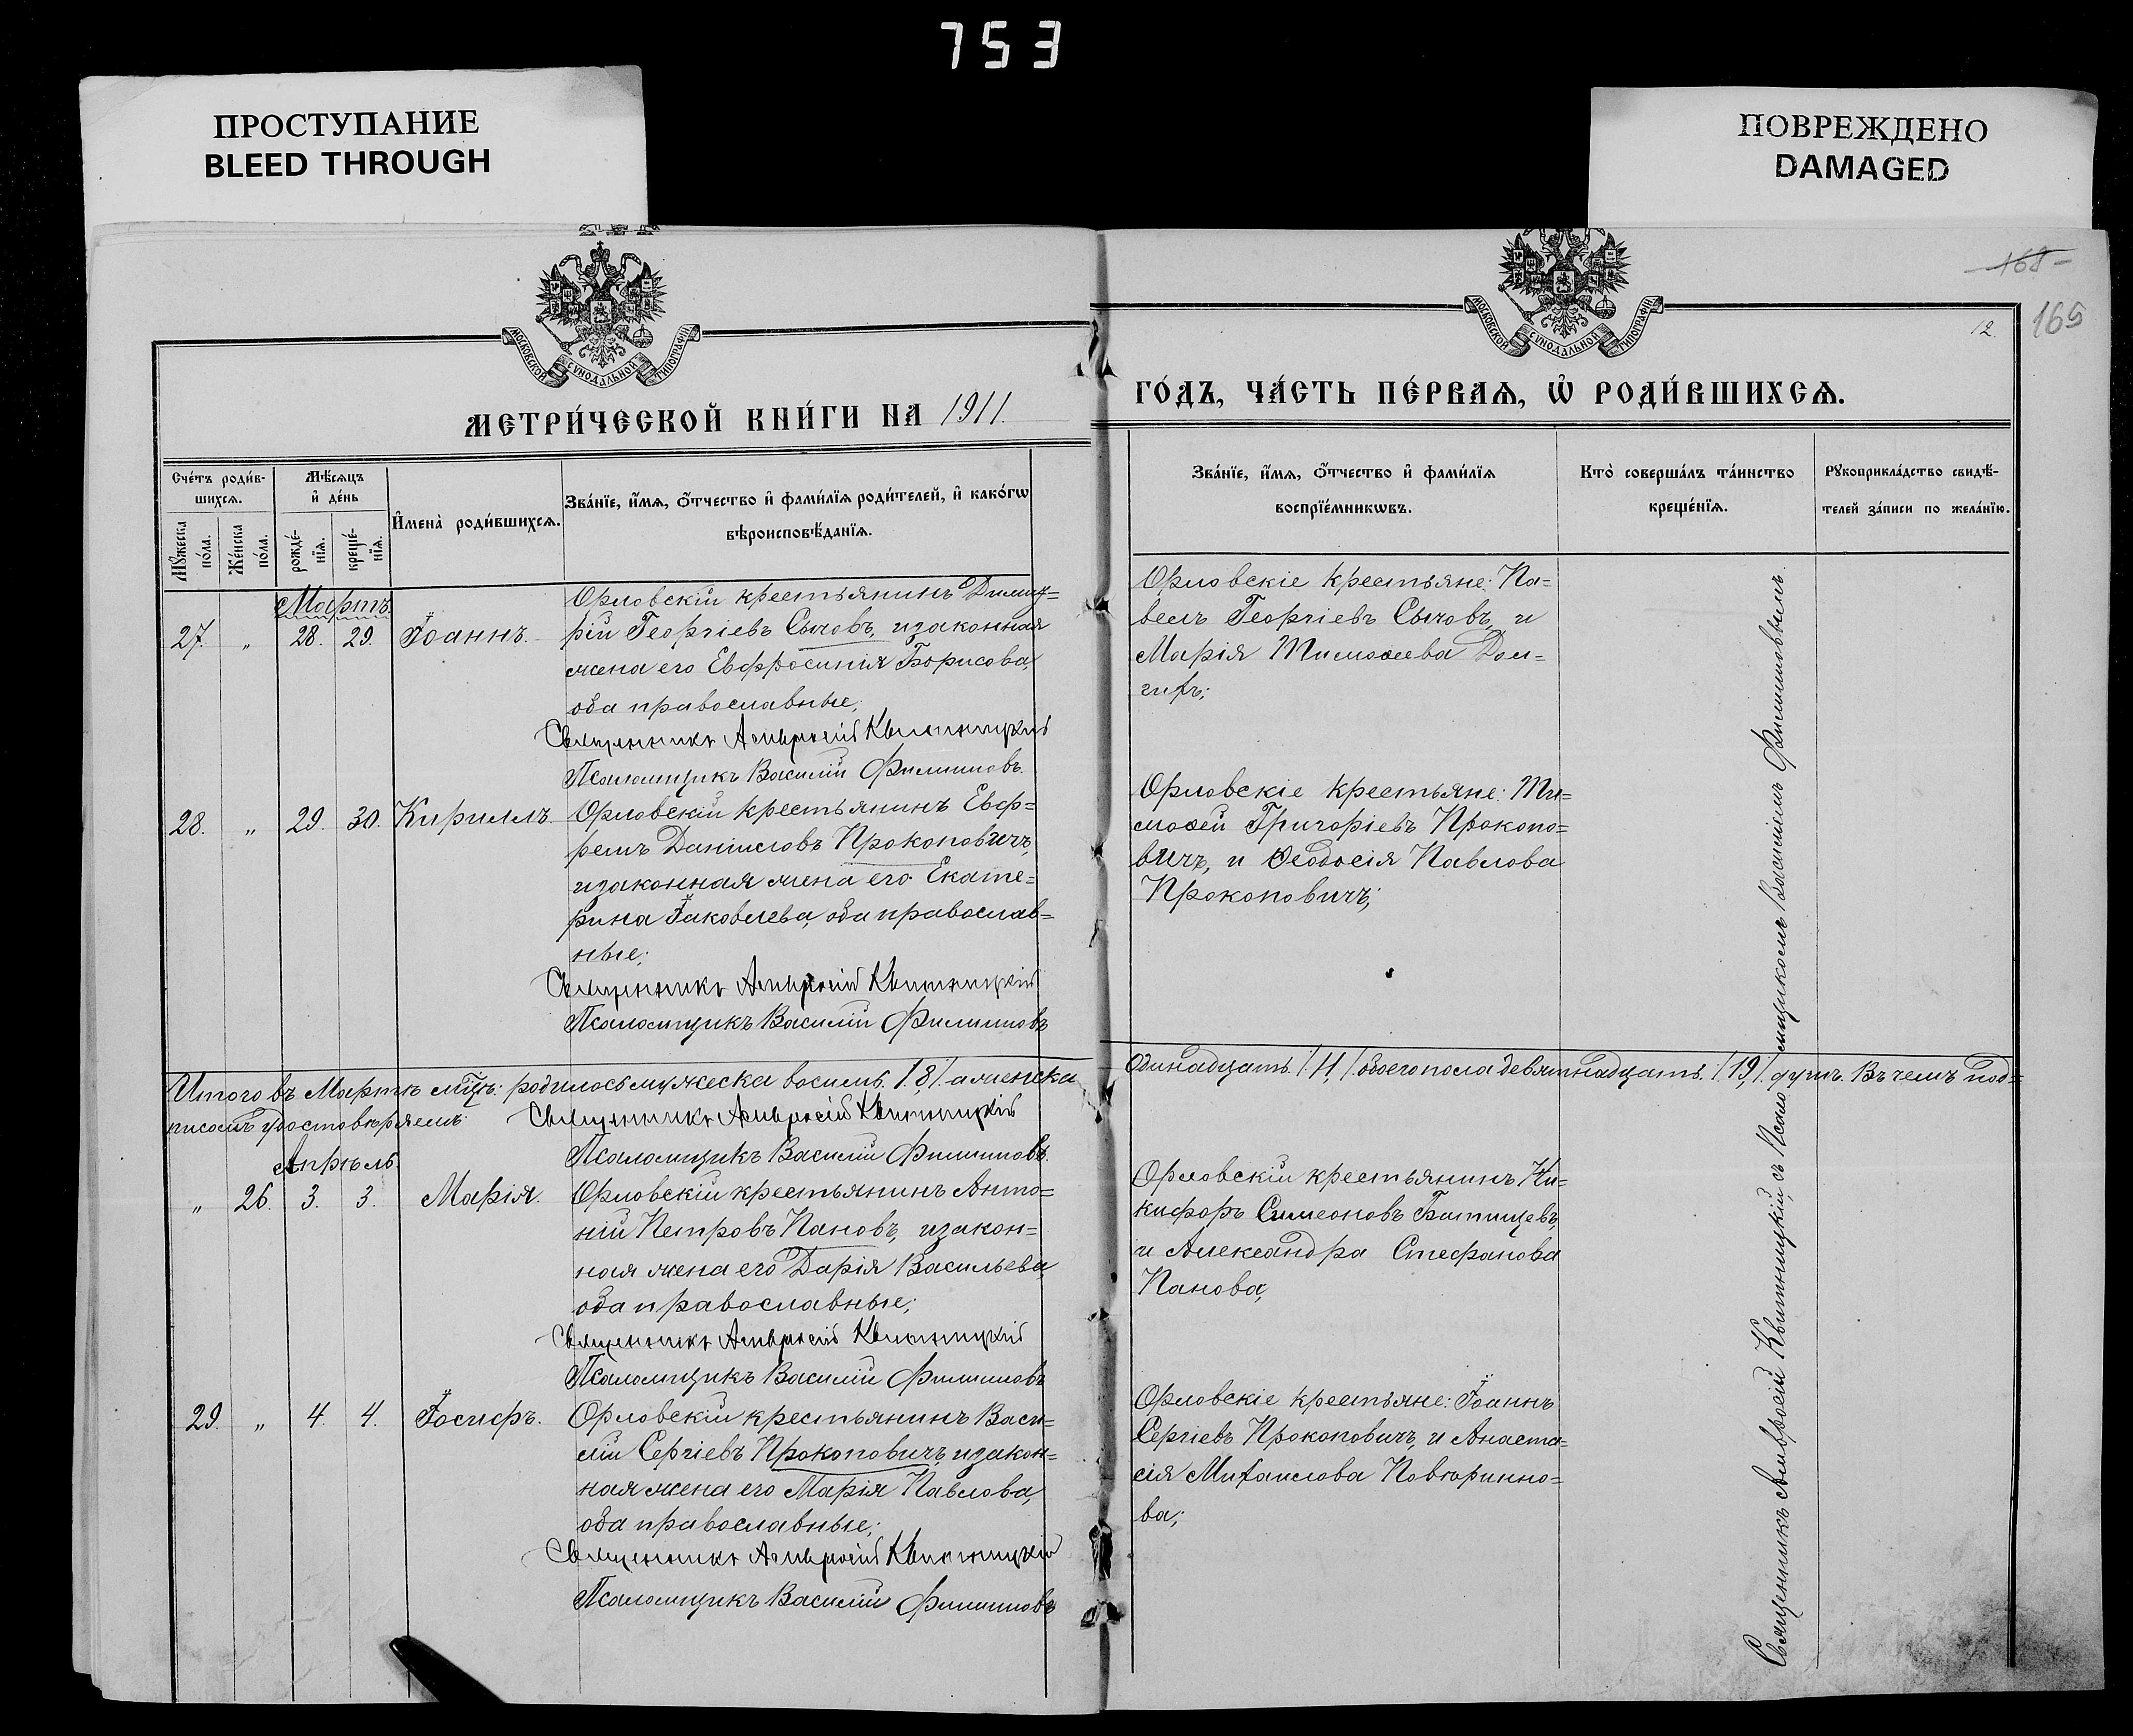 753
ПРОСТУПАНИЕ
BLEED THROUGH
ПОВРЕЖДЕНО
DAMAGED
165
12.
МОСКОВСКОЙ СѴНОДАЛЬНОЙ ТИПОГРАФІИ
МОСКОВСКОЙ СѴНОДАЛЬНОЙ ТИПОГРАФІИ
МЕТРИ́ЧЕСКОЙ КНИ́ГИ НА 1911.
ГО́ДЪ, ЧА́СТЬ ПЕ́РВАѦ, Ѡ҆ РОДИ́ВШИХСѦ.
Сче́тъ роди́в-
шихсѧ.
Мѣ́сѧцъ
и҆ де́нь
Мꙋ́жеска
по́ла.
Же́нска
по́ла.
рожде́-
нїѧ.
креще́-
нїѧ.
И҆мена̀ роди́вшихсѧ.
Зва́нїе, и҆́мѧ, о҆́тчество и҆ фами́лїѧ роди́телей, и҆ како́гѡ
вѣроисповѣ́данїѧ.
Зва́нїе, и҆́мѧ, о҆́тчество и҆ фами́лїѧ
воспрїе́мникѡвъ.
Кто̀ соверша́лъ та́инство
креще́нїѧ.
Рꙋкоприкла́дство свидѣ́-
телей за́писи по жела́нїю.
Мартъ
27. „ 28. 29. Іоаннъ.
Орловскій крестьянинъ Димит=
рій Георгіевъ Сычовъ, и законная
жена его Евфросинія Борисова,
оба православные;
Священникъ Амвросій Квитницкій
Псаломщикъ Василій Филипповъ.
Орловскіе крестьяне: Па=
велъ Георгіевъ Сычовъ, и
Марія Тимоѳеева Дол=
гихъ;
28. „ 29. 30. Кириллъ.
Орловскій крестьянинъ Евф=
ремъ Даніиловъ Прокоповичъ,
и законная жена его Екате=
рина Іаковлева, оба православ=
ные;
Священникъ Амвросій Квитницкій
Псаломщикъ Василій Филипповъ
Орловскіе крестьяне: Ти=
моѳей Григоріевъ Прокопо=
вичъ, и Ѳеодосія Павлова
Прокоповичъ;
Итого въ Мартѣ мцѣ: родилось мужеска восемь /8/ а женска
одинадцать /11,/ обоего пола девятнадцать /19,/ душъ. Въ чемъ под=
писомъ удостовѣряемъ:
Священникъ Амвросій Квитницкій
Псаломщикъ Василій Филипповъ.
Апрѣль
„ 26. 3. 3. Марія.
Орловскій крестьянинъ Анто=
ній Петровъ Пановъ, и закон=
ная жена его Дарія Васильева,
оба православные;
Священникъ Амвросій Квитницкій
Псаломщикъ Василій Филипповъ
Орловскій крестьянинъ Ни=
кифоръ Симеоновъ Батищевъ,
и Александра Стефанова
Панова;
29. „ 4. 4. Іосифъ.
Орловскій крестьянинъ Васи=
лій Сергіевъ Прокоповичъ, и закон=
ная жена его Марія Павлова,
оба православные;
Священникъ Амвросій Квитницкій
Псаломщикъ Василій Филипповъ
Орловскіе крестьяне: Іоаннъ
Сергіевъ Прокоповичъ, и Анаста=
сія Михаилова Повюринно=
ва;
Священникъ Амвросій Квитницкій, съ Псаломщикомъ Василіемъ Филипповымъ.